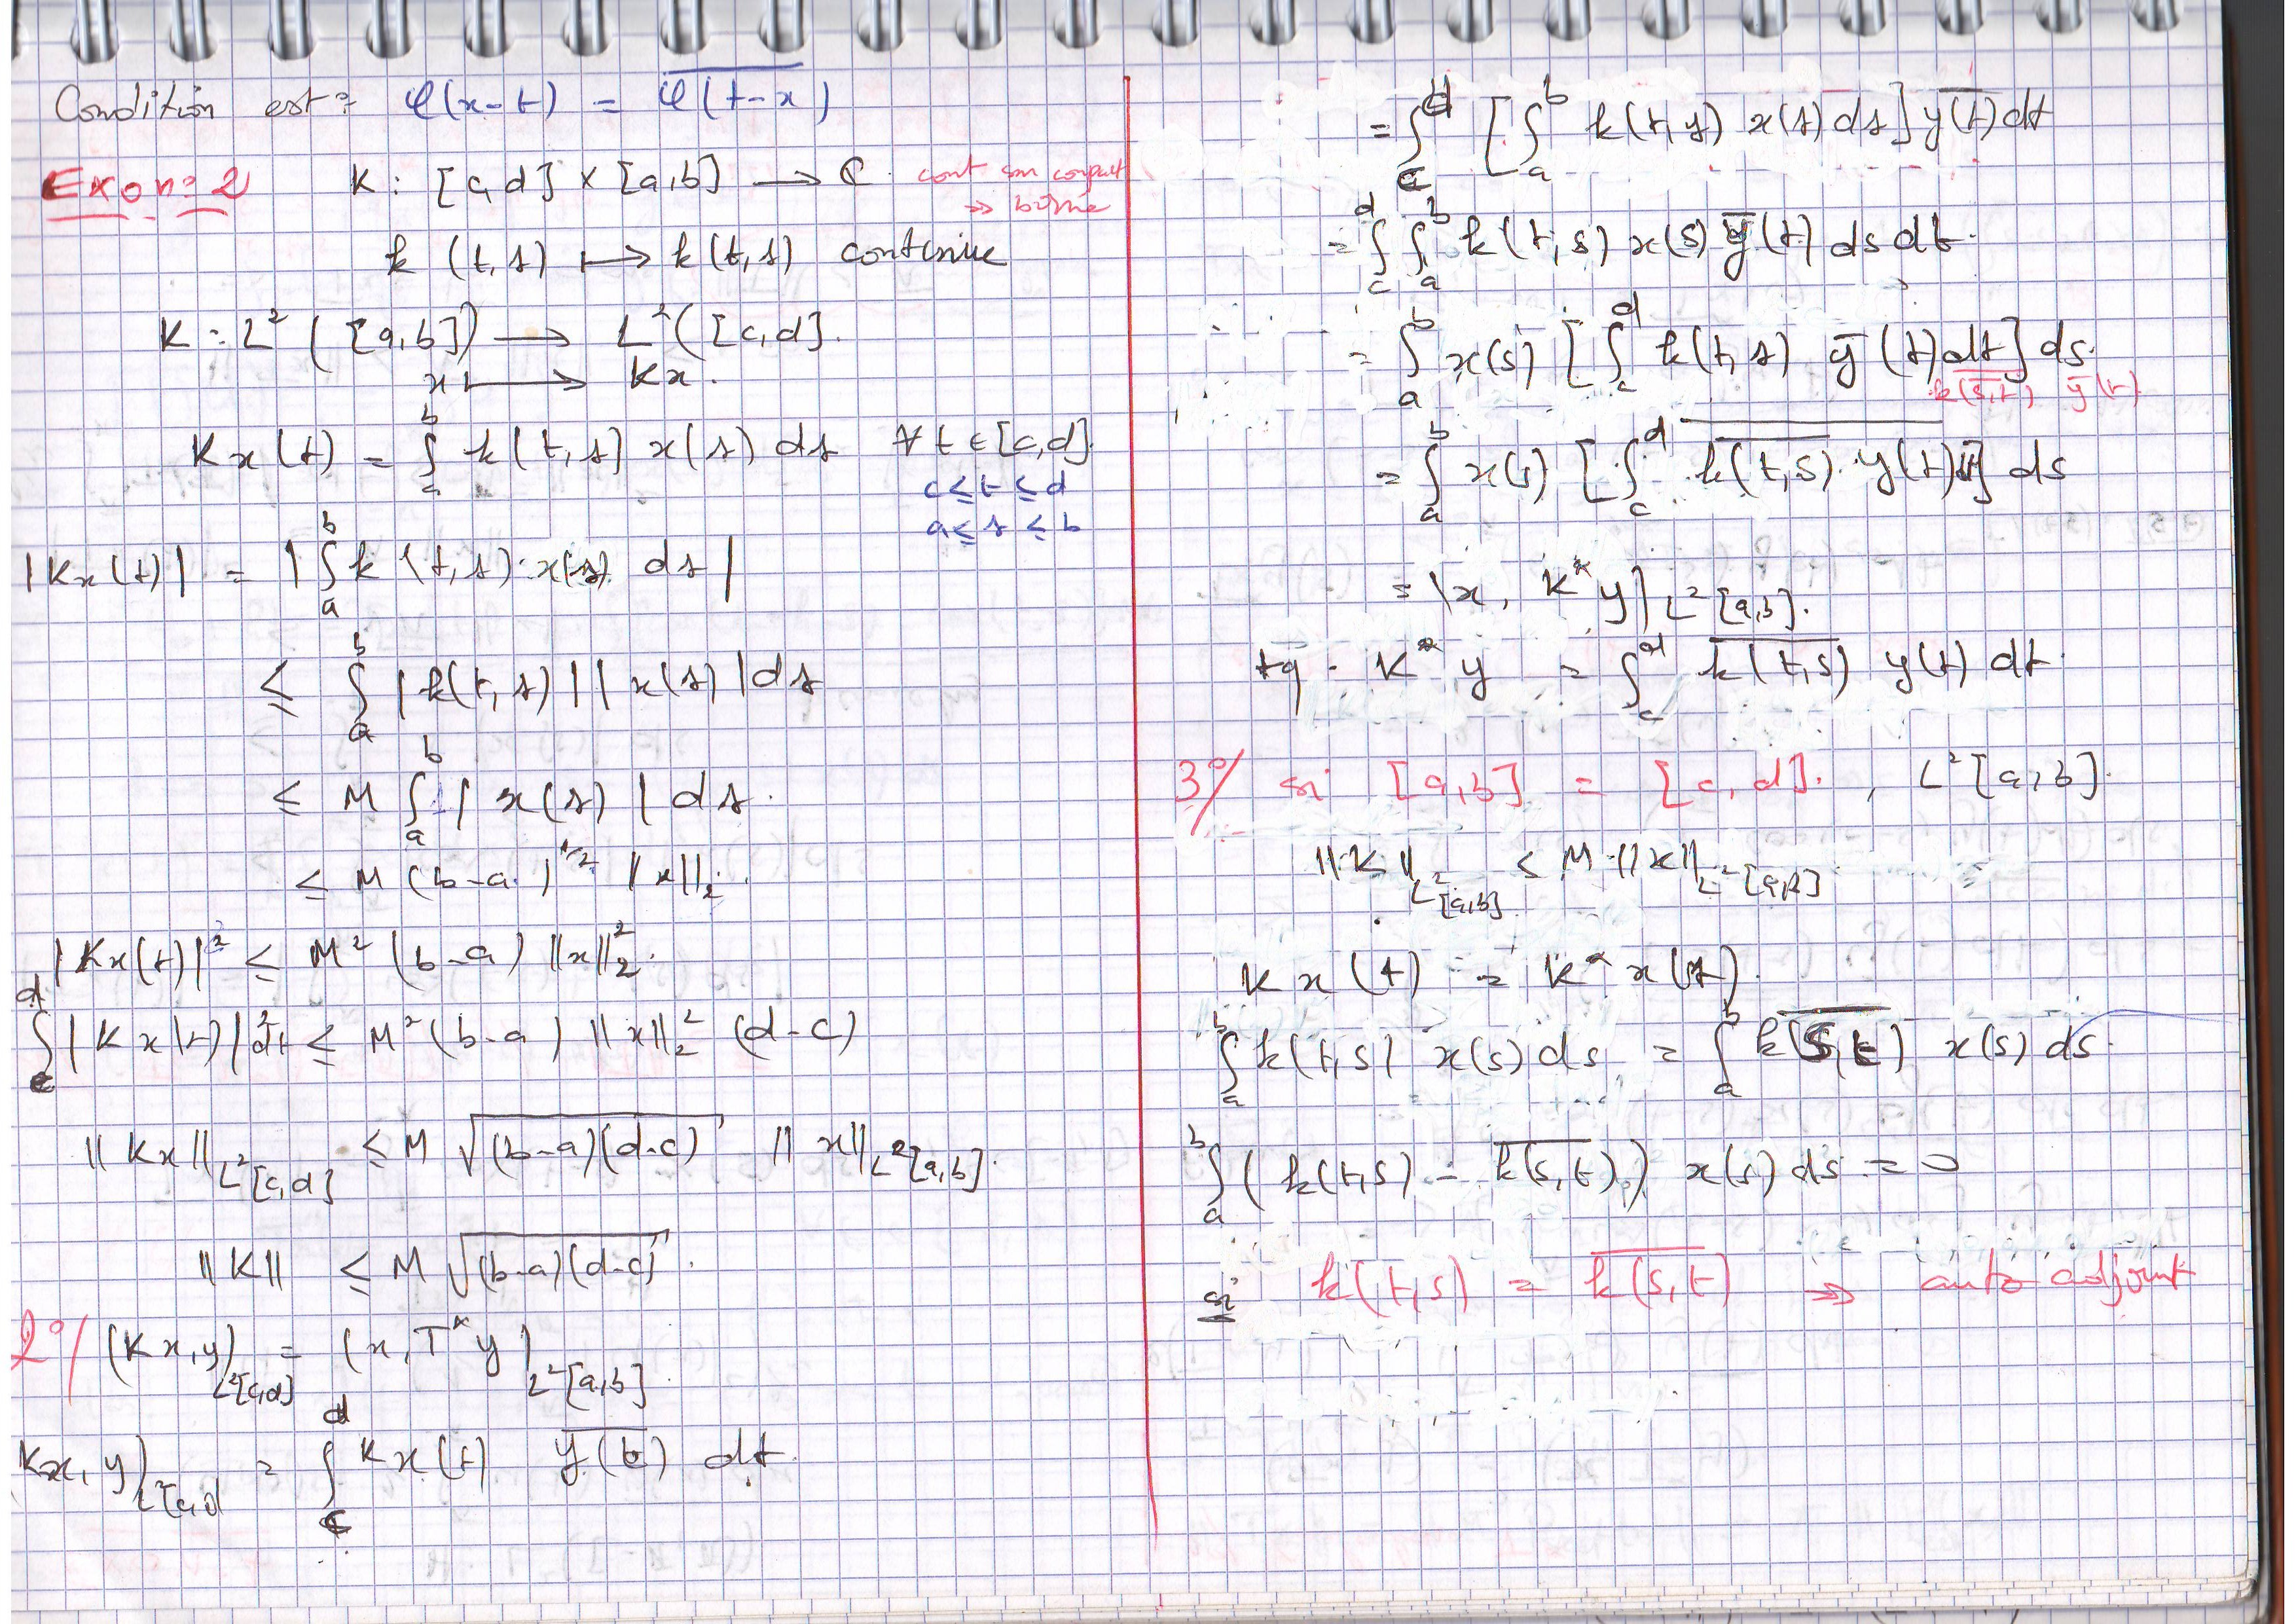 Condition est: φ(x-t) = \overline{φ(t-x)}
Exo n: 2 K: [c,d] × [a,b] → C. cont sur compact
⇒ bornée
k (t,s) ↦ k(t,s) continue
K : L² ([a,b]) → L² ([c,d].
x ↦ Kx.
Kx(t) = ∫_a^b k(t,s) x(s) ds ∀ t ∈ [c,d].
c ≤ t ≤ d
a ≤ s ≤ b
|Kx(t)| = |∫_a^b k(t,s) x(s) ds|
≤ ∫_a^b |k(t,s)| |x(s)| ds
≤ M ∫_a^b |x(s)| ds.
≤ M (b-a)^{1/2} ||x||_2.
|Kx(t)|² ≤ M² (b-a) ||x||_2².
∫_c^d |Kx(t)|² dt ≤ M² (b-a) ||x||_2² (d-c)
||Kx||_{L²[c,d]} ≤ M √((b-a)(d-c)) ||x||_{L²[a,b]}.
||K|| ≤ M √((b-a)(d-c)).
2°/ (Kx,y)_{L²[c,d]} = (x,T*y)_{L²[a,b]}.
Kx, y)_{L²[c,d} = ∫_c^d Kx(t) \overline{y(t)} dt.
= ∫_c^d [∫_a^b k(t,s) x(s) ds] \overline{y(t)} dt
= ∫_c^d ∫_a^b k(t,s) x(s) \overline{y}(t) ds dt.
= ∫_a^b x(s) [∫_c^d k(t,s) \overline{y}(t) dt] ds.
\overline{k(s,t)} \overline{y}(t)
= ∫_a^b x(s) [∫_c^d \overline{\overline{k(t,s)} y(t)}] ds
= (x, K*y)_{L²[a,b]}.
tq. K* y = ∫_c^d \overline{k(t,s)} y(t) dt.
3°/ si [a,b] = [c,d]. , L²[a,b].
||K||_{L²[a,b]} ≤ M ||x||_{L²[a,b]}
Kx(t) = K* x(t).
∫_a^b k(t,s) x(s) ds = ∫_a^b \overline{k(s,t)} x(s) ds.
∫_a^b (k(t,s) - \overline{k(s,t)}) x(s) ds = 0
si k(t,s) = \overline{k(s,t)} ⇒ auto adjoint